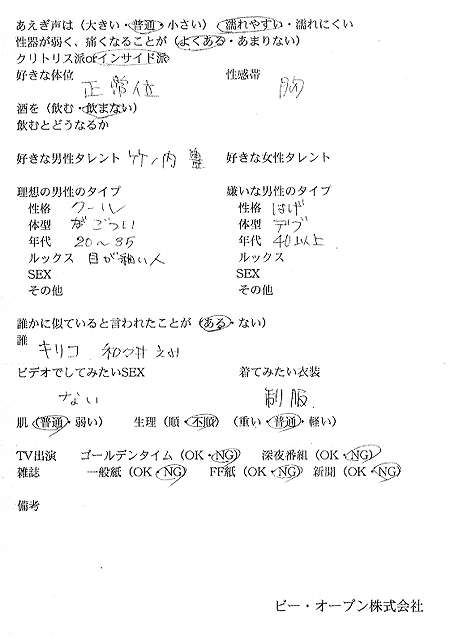 あえぎ声は（大きい・普通・小さい）（濡れやすい・濡れにくい
性器が弱く、痛くなることが（よくある・あまりない）
クリトリス派orインサイド派
好きな体位 性感帯
正常位 胸
酒を（飲む・飲まない）
飲むとどうなるか
好きな男性タレント 竹ノ内豊 好きな女性タレント
理想の男性のタイプ 嫌いな男性のタイプ
性格 クール 性格 はげ
体型 がごつい 体型 デブ
年代 20～35 年代 40以上
ルックス 目が細い人 ルックス
SEX SEX
その他 その他
誰かに似ていると言われたことが（ある・ない）
誰
キリコ 和久井えみ
ビデオでしてみたいSEX 着てみたい衣装
ない 制服
肌（普通・弱い） 生理（順・不順） （重い・普通・軽い）
TV出演 ゴールデンタイム（OK・NG） 深夜番組（OK・NG）
雑誌 一般紙（OK・NG） FF紙（OK・NG） 新聞（OK・NG）
備考
ビー・オープン株式会社